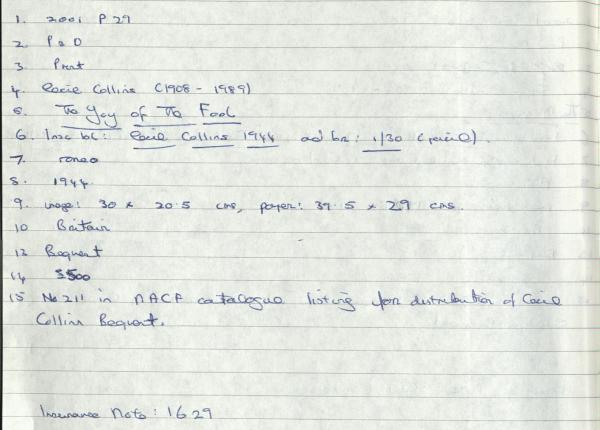 1. 2001 P 29
2. P & D
3. Print
4. Cecil Collins (1908 - 1989)
5. The Joy of The Fool
6. Insc bl: Cecil Collins 1944 and br: 1/30 (pencil).
7. roneo
8. 1944
9. image: 30 x 20.5 cms, paper: 39.5 x 29 cms.
10 Britain
13 Bequest
14 £500
15 No 211 in NACF catalogue listing for distribution of Cecil
Collins Bequest.
Insurance Note: 1629